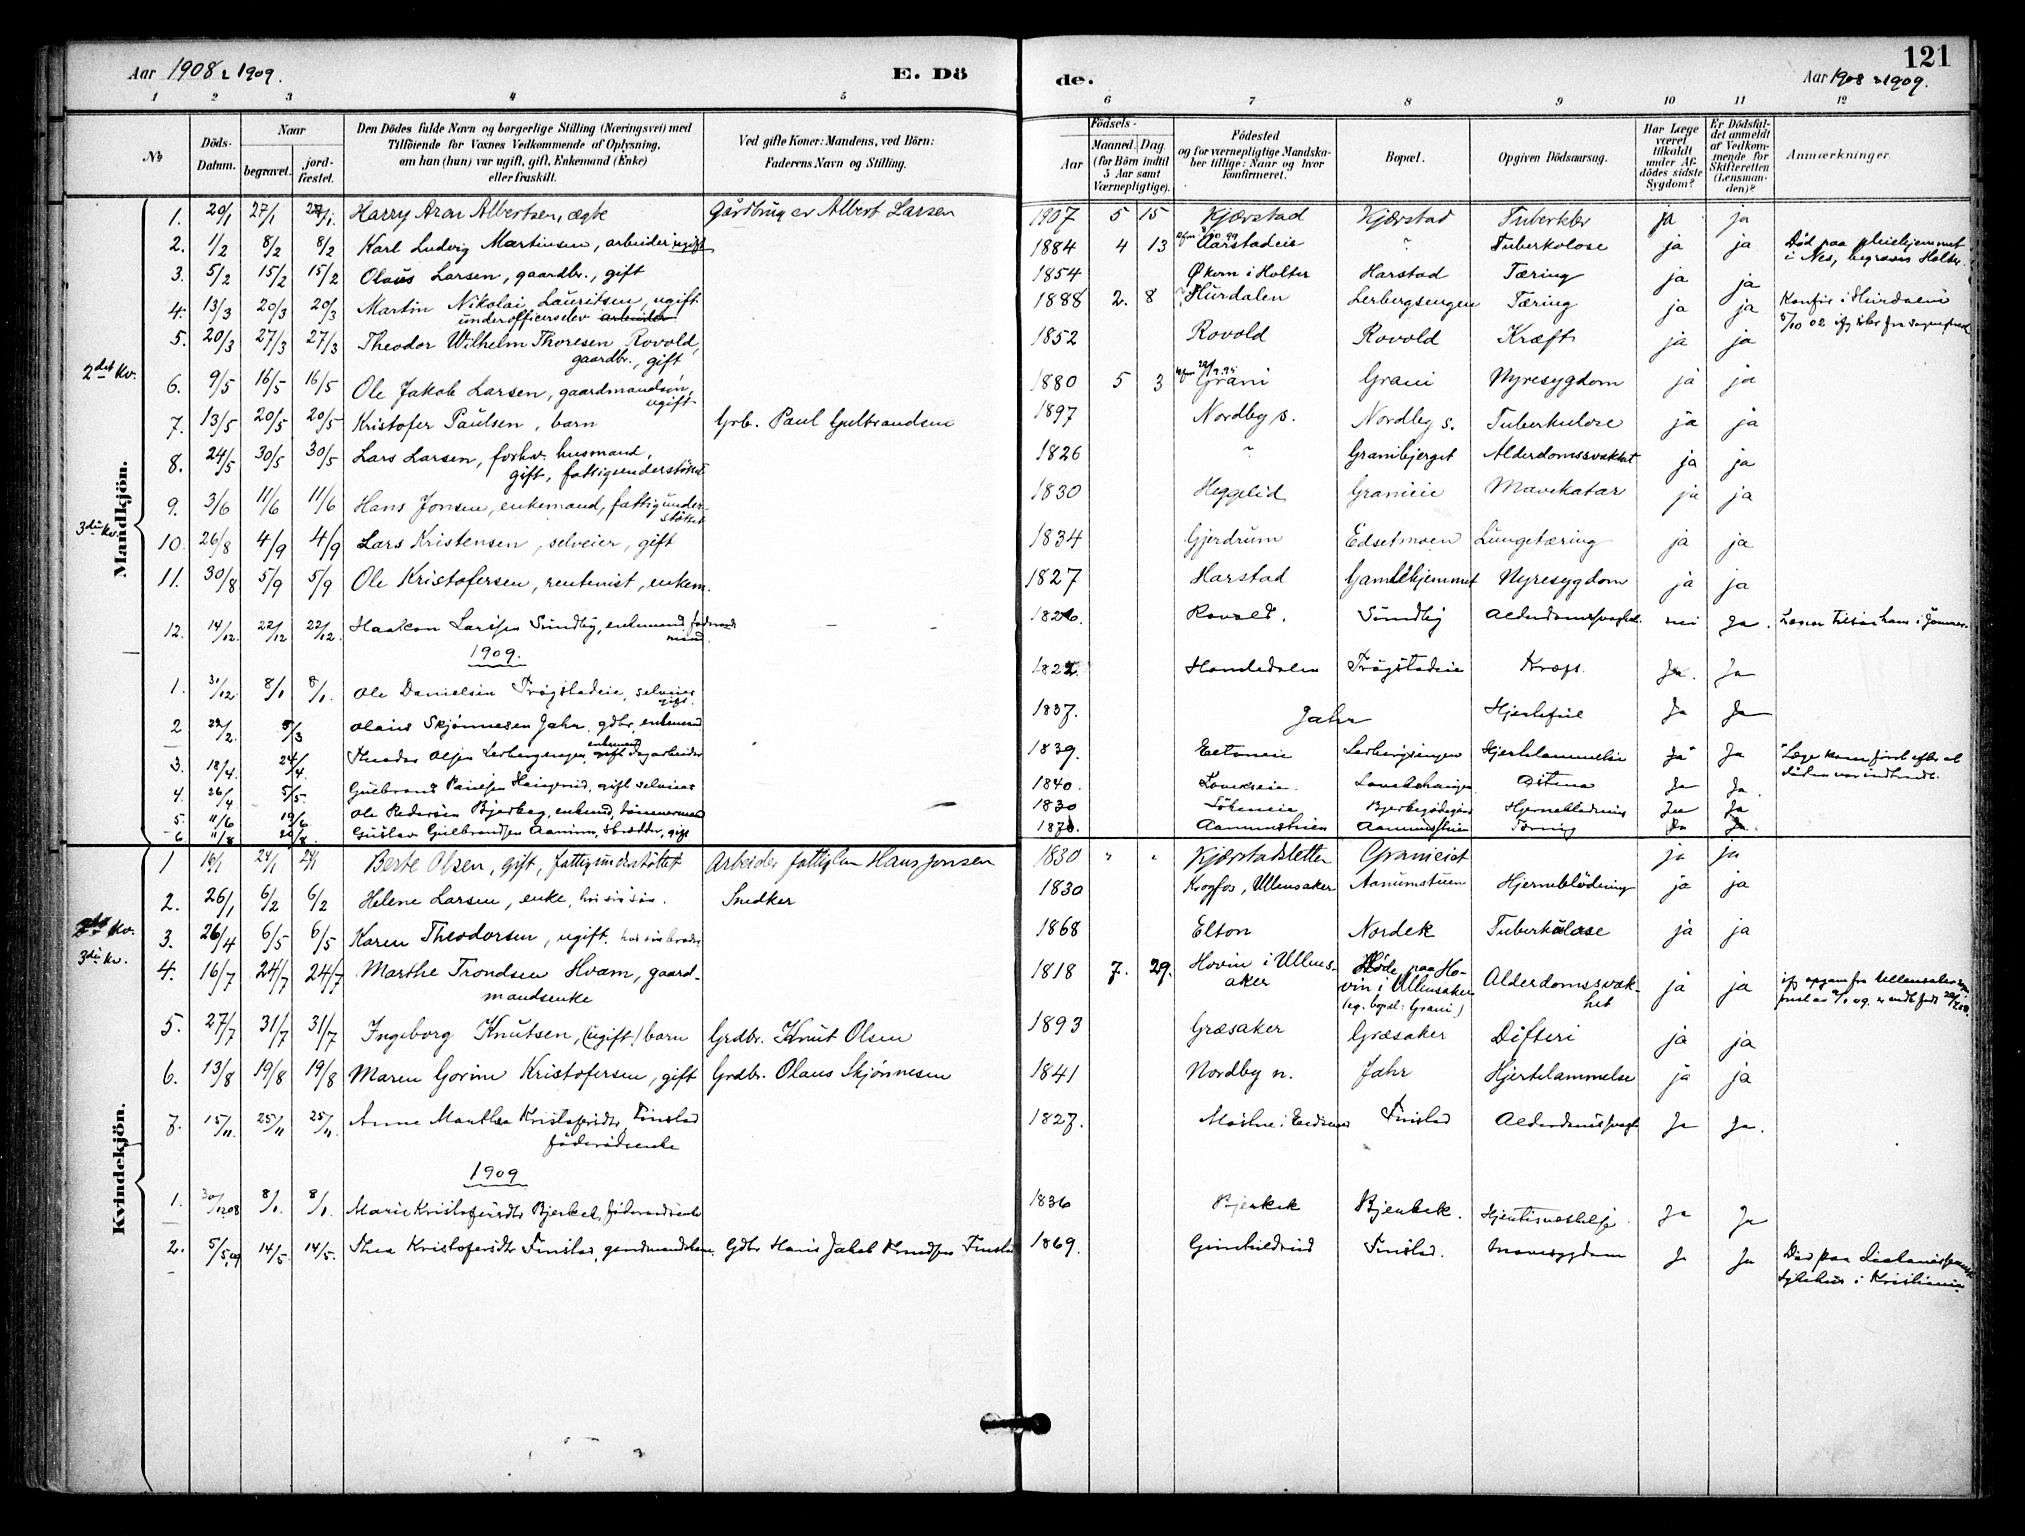 Aar 1908 & 1909.
E. Dö
de.
121
Aar 1908 & 1909.
1 2 3 4 5 6 7 8 9 10 11 12
№
Döds-Datum.
Naar
begravet.
jord-fæstet.
Den Dödes fulde Navn og borgerlige Stilling (Næringsvei) med
Tilföiende for Voxnes Vedkommende af Oplysning,
om han (hun) var ugift, gift, Enkemand (Enke)
eller fraskilt.
Ved gifte Koner: Mandens, ved Börn:
Faderens Navn og Stilling.
Födsels-
Aar
Maaned. Dag.
(for Börn indtil
5 Aar samt
Værnepligtige).
Födested
og for værnepligtige Mandska-
ber tillige: Naar og hvor
Konfirmeret.
Bopæl.
Opgiven Dödsaarsag.
Har Læge
været
tilkaldt
under Af-
dödes sidste
Sygdom?
Er Dödsfal-
det anmeldt
af Vedkom-
mende for
Skifteretten
(Lensman-
den)?
Anmærkninger.
Mandkjön.
1. 20/1 27/1 27/1. Harry Aron Albertsen, ægte Gårdbruger Albert Larsen 1907 5 15 Kjærstad Kjærstad Tuberkler ja ja
2. 1/2 8/2 8/2 Karl Ludvig Martinsen, arbeider ugift 1884 4 13 Aarstadeie " Tuberkolose ja ja Död paa pleiehjemmet
i Nes, begravet Holter.
3. 5/2 15/2 15/2 Olaus Larsen, gaardbr., gift 1854 Økern i Holter Harstad Tæring ja ja
4. 13/3 20/3 20/3 Martin Nikolai Lauritsen, ugift 1888 2. 8 Hurdalen Lerbergsengen Tæring ja ja Konfir. i Hurdalen
underofficerselev arbeider 5/10 02
5. 20/3 27/3 27/3 Theodor Wilhelm Thoresen Rovold, 1852 Rovold Rovold Kræft ja ja
gaardbr., gift
2det Kv.
6. 9/5 16/5 16/5 Ole Jakob Larsen, gaardmandsøn, 1880 5 3 Grani Grani Nyresygdom ja ja
ugift
7. 13/5 20/5 20/5 Kristofer Paulsen, barn Grb. Paul Gulbrandsen 1897 Nordby s. Nordby s. Tuberkulose ja ja
8. 24/5 30/5 30/5 Lars Larsen, forhv. husmand, 1826 " Granibjerget Alderdomssvakhet ja ja
gift, fattigunderstöttet
9. 3/6 11/6 11/6 Hans Jonsen, enkemand, fattigunder- 1830 Heggelid Granieie Mavekatar ja ja
støttet
3die Kv.
10. 26/8 4/9 4/9 Lars Kristensen, selveier, gift 1834 Gjerdrum Edsetmoen Lungetæring ja ja
11. 30/8 5/9 5/9 Ole Kristofersen, rentenist, enkem. 1827 Harstad Gamlehjemmet Nyresygdom ja ja
12. 14/12. 22/12 22/12. Haakon Larssen Sundby, enkemand 1826. Rovold. Sundby nei Ja.
1909.
1. 31/12. 8/1 8/1. Ole Danielsen Trögstadeie, selveier 1822. Trögstadeie Kræft. Ja. Ja
gift.
2 22/2. 5/3 Olaus Skjönnesen Jahr, gdbr., enkemand 1837. Jahr Hjertefeil Ja Ja
3. 18/4. 24/4. enkemand 1839. Hjertelammelse Ja Ja
4. 26/4 5/5. gift selveier 1840. Ja Ja.
5. 11/6 19/6. Ole Pedersen Bjerkeg, enkemd, tömmermand 1830 Hjerneblødning Ja Ja
6 11/8 20/8. Gustav Gulbrandsen Aanum, skrædder, gift Tæring Ja Ja.
Kvindekjön.
1 16/1 24/1 24/1 Berte Olsen, gift, fattigunderstöttet Arbeider, fattiglem Hans Jonsen 1830 " " Kjærstadsletten Granieiet ja ja
2. 26/1 6/2 6/2 Helene Larsen, enke, hos sin sön. Snedker 1830 Krogfos, Ullensaker Aanumstuen Hjerneblödning ja ja
2det Kv.
3. 26/4 6/5 6/5 Karen Theodorsen, ugift. hos sin broder 1868 Elton Nordek Tuberkulose ja ja
3die Kv.
4. 16/7 24/7 24/7 Marthe Trondsen Hvam, gaard- 1818 7. 29. Hovin i Ullens- Döde paa Ho- Alderdomssvak- ja ja
mandsenke aker vin i Ullensaker het
(eg. bopæl: Grani)
5. 27/7 31/7 31/7 Ingeborg Knutsen, (ugift) barn Grdbr. Knut Olsen 1893 Græsaker Græsaker Difteri ja ja
6. 13/8 19/8 19/8 Maren Gorine Kristofersen, gift Grdbr. Olaus Skjönnesen 1841 Nordby n. Jahr Hjertelammelse ja ja
7. 15/11. 25/11 25/11. Anne Marthea Kristofersdtr. Finstad 1827. Finstad Ja Ja.
föderådsenke
1909
1. 30/12 08 8/1. 8/1. Marie Kristofersdtr Bjerkek, föderaadsenke 1836 Bjerkek Bjerkek. Ja Ja
2. 5/5 09 14/5. 14/5. Thea Kristofersdtr Finstad, gaardmandskone Gdbr. Hans Jakob Knudsen Finstad 1869. Finstad. Mavesygdom Ja Ja Död paa Diakonissernes
Sykehus i Kristiania